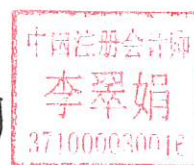 中国注册会计师
李翠娟
371000030016